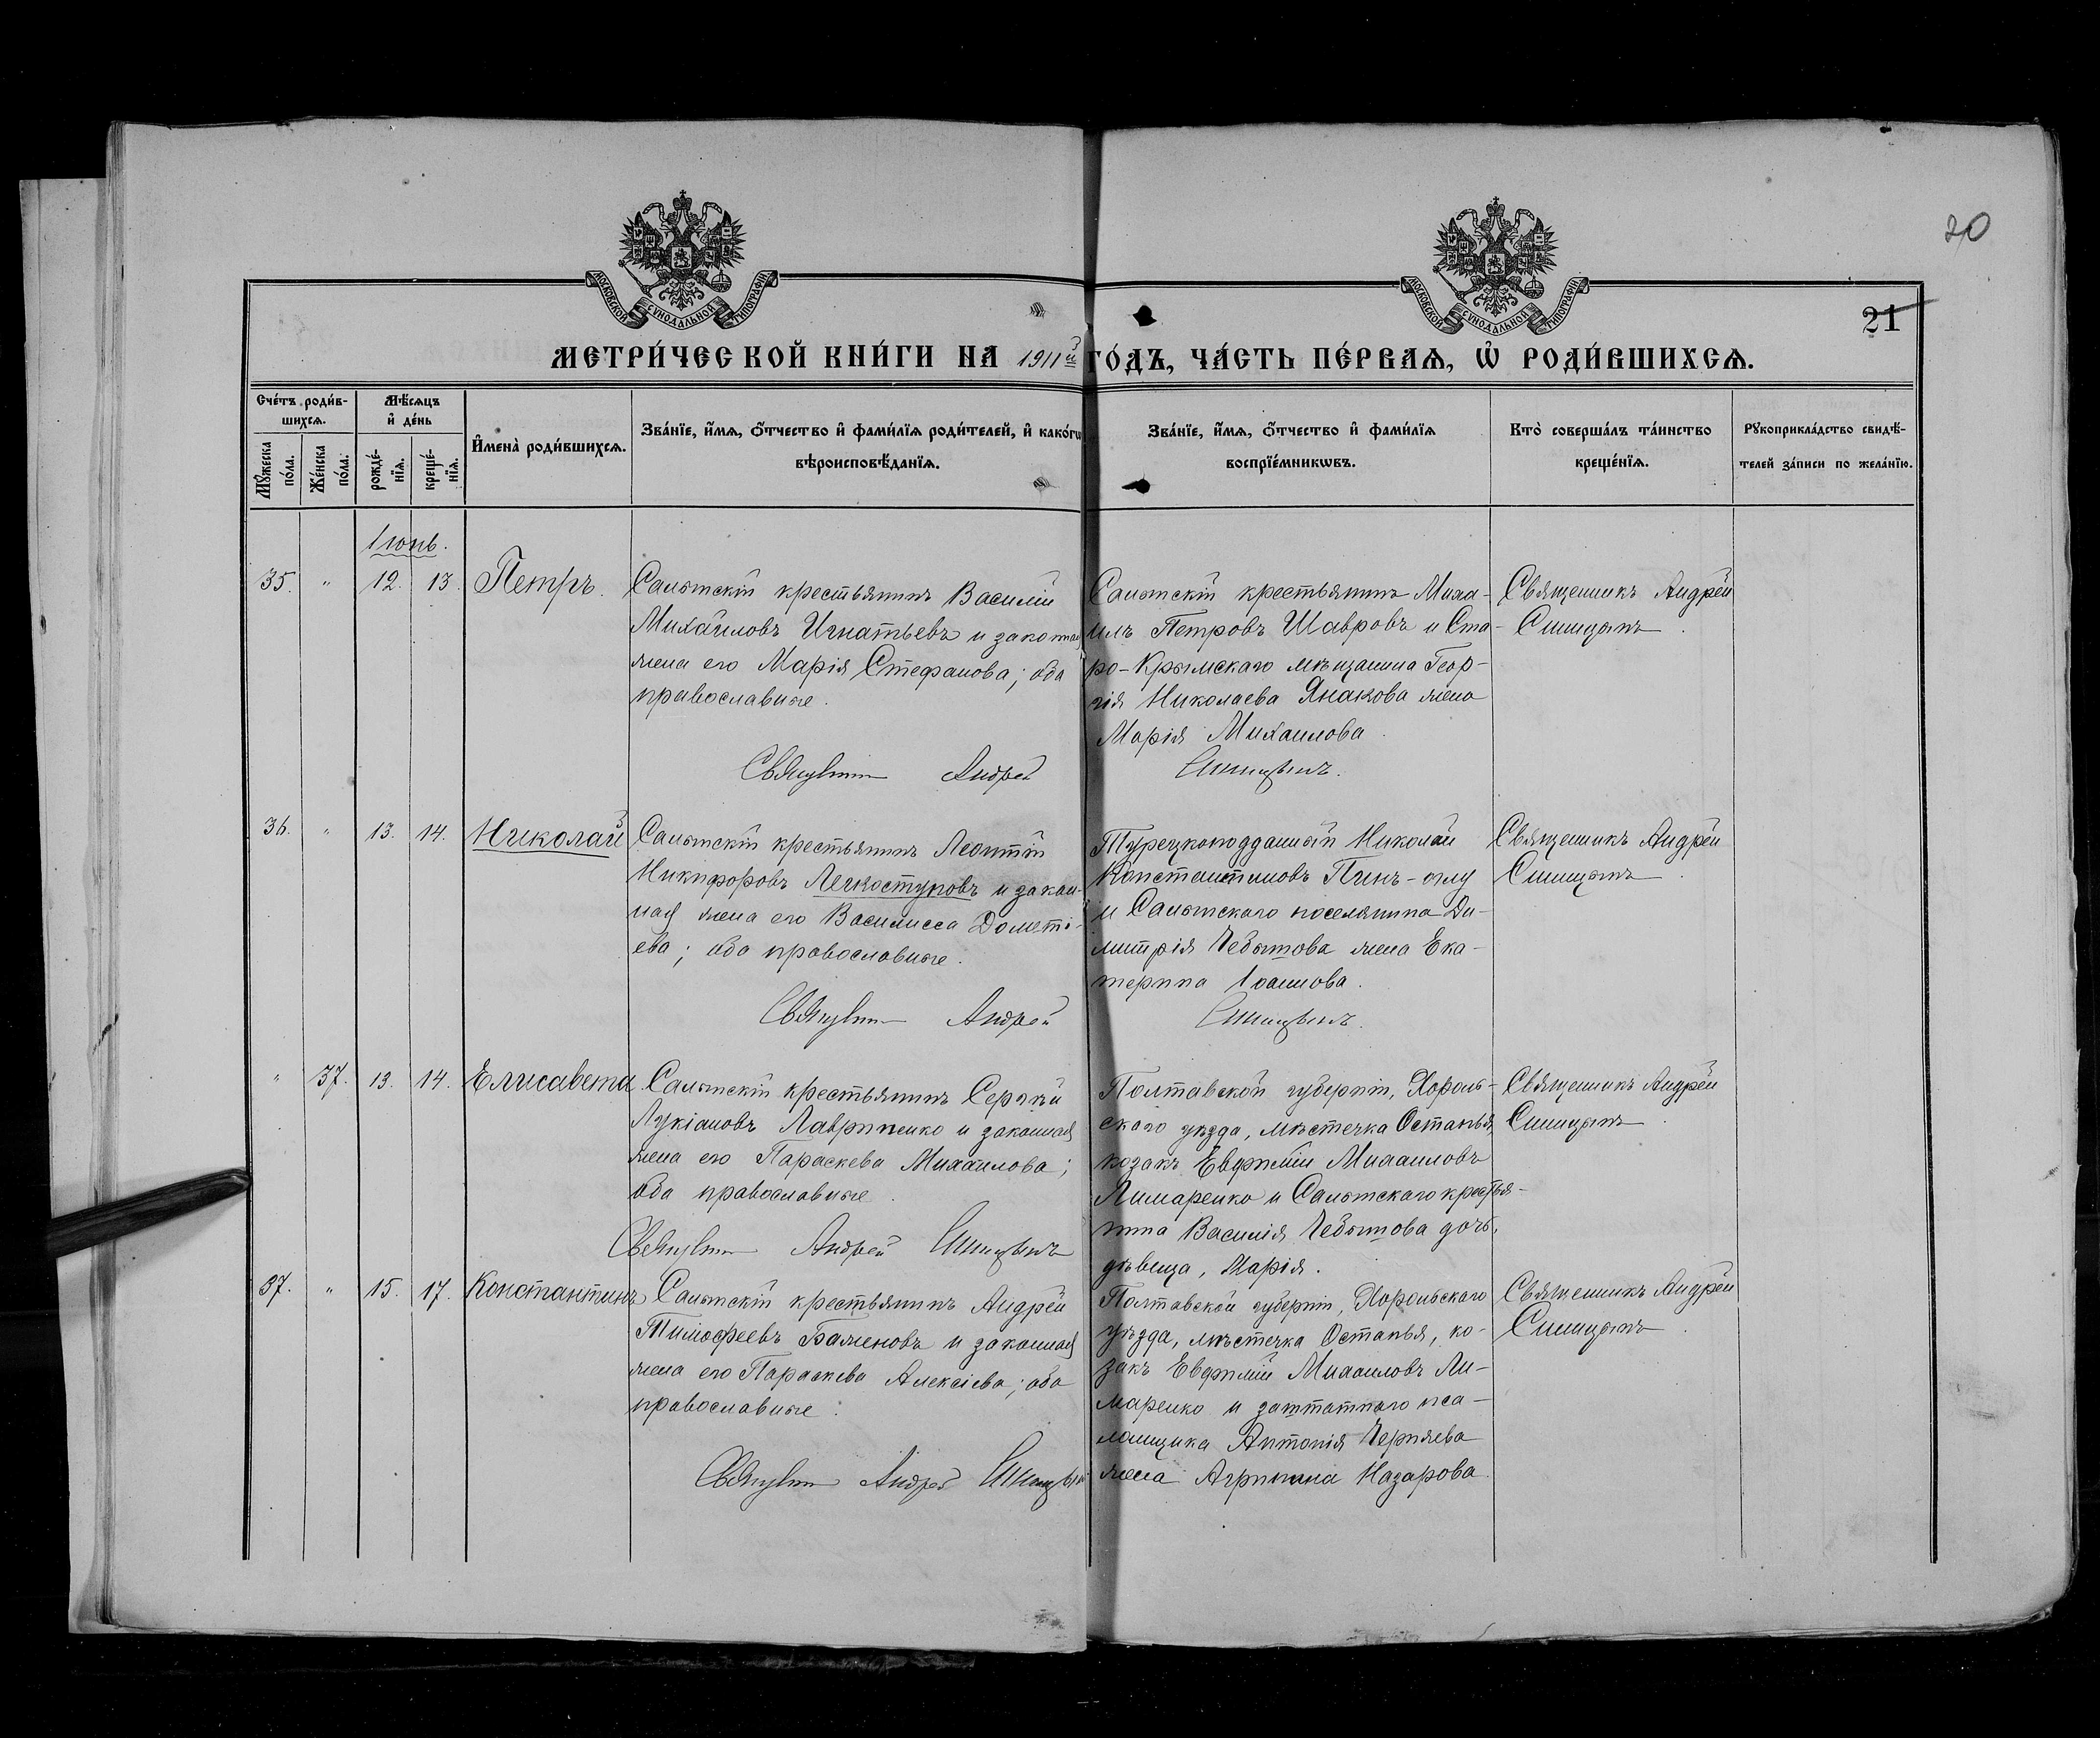 20
21
МОСКОВСКОЙ СѴНОДАЛЬНОЙ ТИПОГРАФІИ
МОСКОВСКОЙ СѴНОДАЛЬНОЙ ТИПОГРАФІИ
МЕТРИ́ЧЕСКОЙ КНИ́ГИ НА 1911й ГО́ДЪ, ЧА́СТЬ ПЕ́РВАѦ, Ѡ҆ РОДИ́ВШИХСѦ.
Сче́тъ роди́в-
шихсѧ.
Мѣ́сѧцъ
и҆ де́нь
Мꙋ́жеска по́ла.
Же́нска по́ла.
рожде́-
нїѧ.
креще́-
нїѧ.
И҆мена̀ роди́вшихсѧ.
Зва́нїе, и҆́мѧ, ѻ҆́тчество и҆ фами́лїѧ роди́телей, и҆ како́гѡ
вѣроисповѣ́данїѧ.
Зва́нїе, и҆́мѧ, ѻ҆́тчество и҆ фами́лїѧ
воспрїе́мникѡвъ.
Кто̀ соверша́лъ та́инство
креще́нїѧ.
Рꙋкоприкла́дство свидѣ́-
телей за́писи по жела́нїю.
Іюнь.
35. " 12. 13. Петръ.
Салытскій крестьянинъ Василій
Михайловъ Игнатьевъ и законная
жена его Марія Стефанова; оба
православные.
Салытскій крестьянинъ Миха-
илъ Петровъ Шавровъ и Ста-
ро-Крымскаго мѣщанина Геор-
гія Николаева Янакова жена
Марія Михаилова.
Священникъ Андрей
Синицынъ.
Священникъ Андрей Синицынъ.
36. " 13. 14. Николай
Салытскій крестьянинъ Леонтій
Никифоровъ Легкоступовъ и закон-
ная жена его Василисса Домети-
ева; оба православные.
Турецкоподданный Николай
Константиновъ Пинъ-оглу
и Салытскаго поселянина Ди-
митрія Чебытова жена Ека-
терина Іоаннова.
Священникъ Андрей
Синицынъ.
Священникъ Андрей Синицынъ.
" 37. 13. 14. Елисавета
Салытскій крестьянинъ Сергѣй
Лукіановъ Лавриненко и законная
жена его Параскева Михаилова;
оба православные.
Полтавской губерніи, Хороль-
скаго уѣзда, мѣстечка Остапья,
козакъ Евфимій Михаиловъ
Лимаренко и Салытскаго крестья-
нина Василія Чебытова дочь,
дѣвица, Марія.
Священникъ Андрей
Синицынъ.
Священникъ Андрей Синицынъ
37. " 15. 17. Константинъ
Салытскій крестьянинъ Андрей
Тимофеевъ Баженовъ и законная
жена его Параскева Алексіева; оба
православные.
Полтавской губерніи, Хорольскаго
уѣзда, мѣстечка Остапья, ко-
закъ Евфимій Михаиловъ Ли-
маренко и заштатнаго пса-
ломщика Антонія Черняева
жена Агриппина Назарова.
Священникъ Андрей
Синицынъ.
Священникъ Андрей Синицынъ